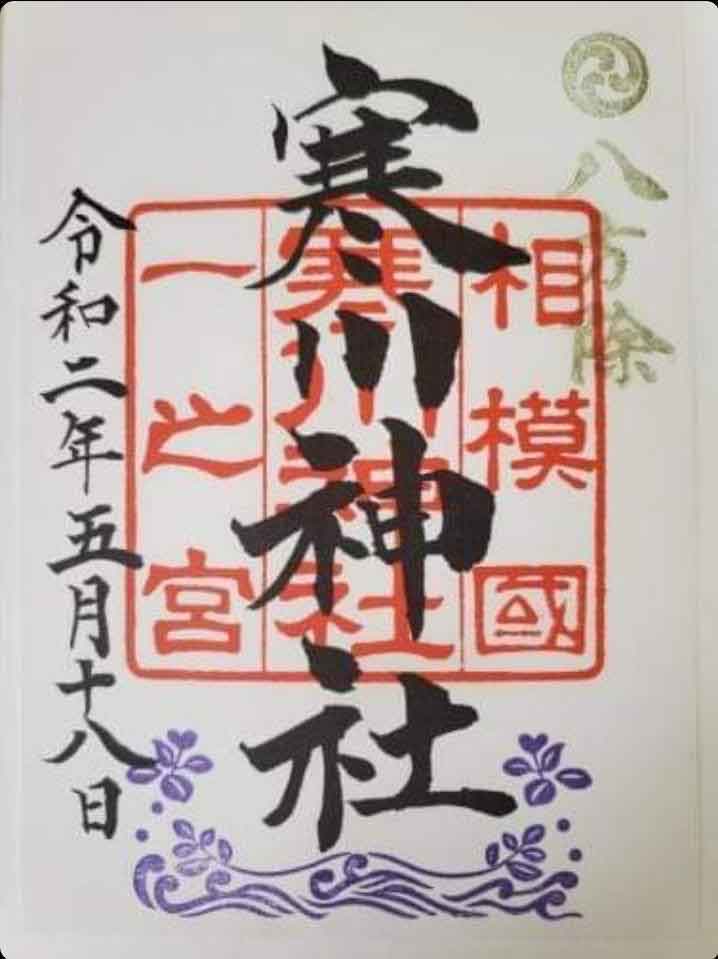 八方除
相模國
寒川神社
一之宮
寒川神社
令和二年五月十八日